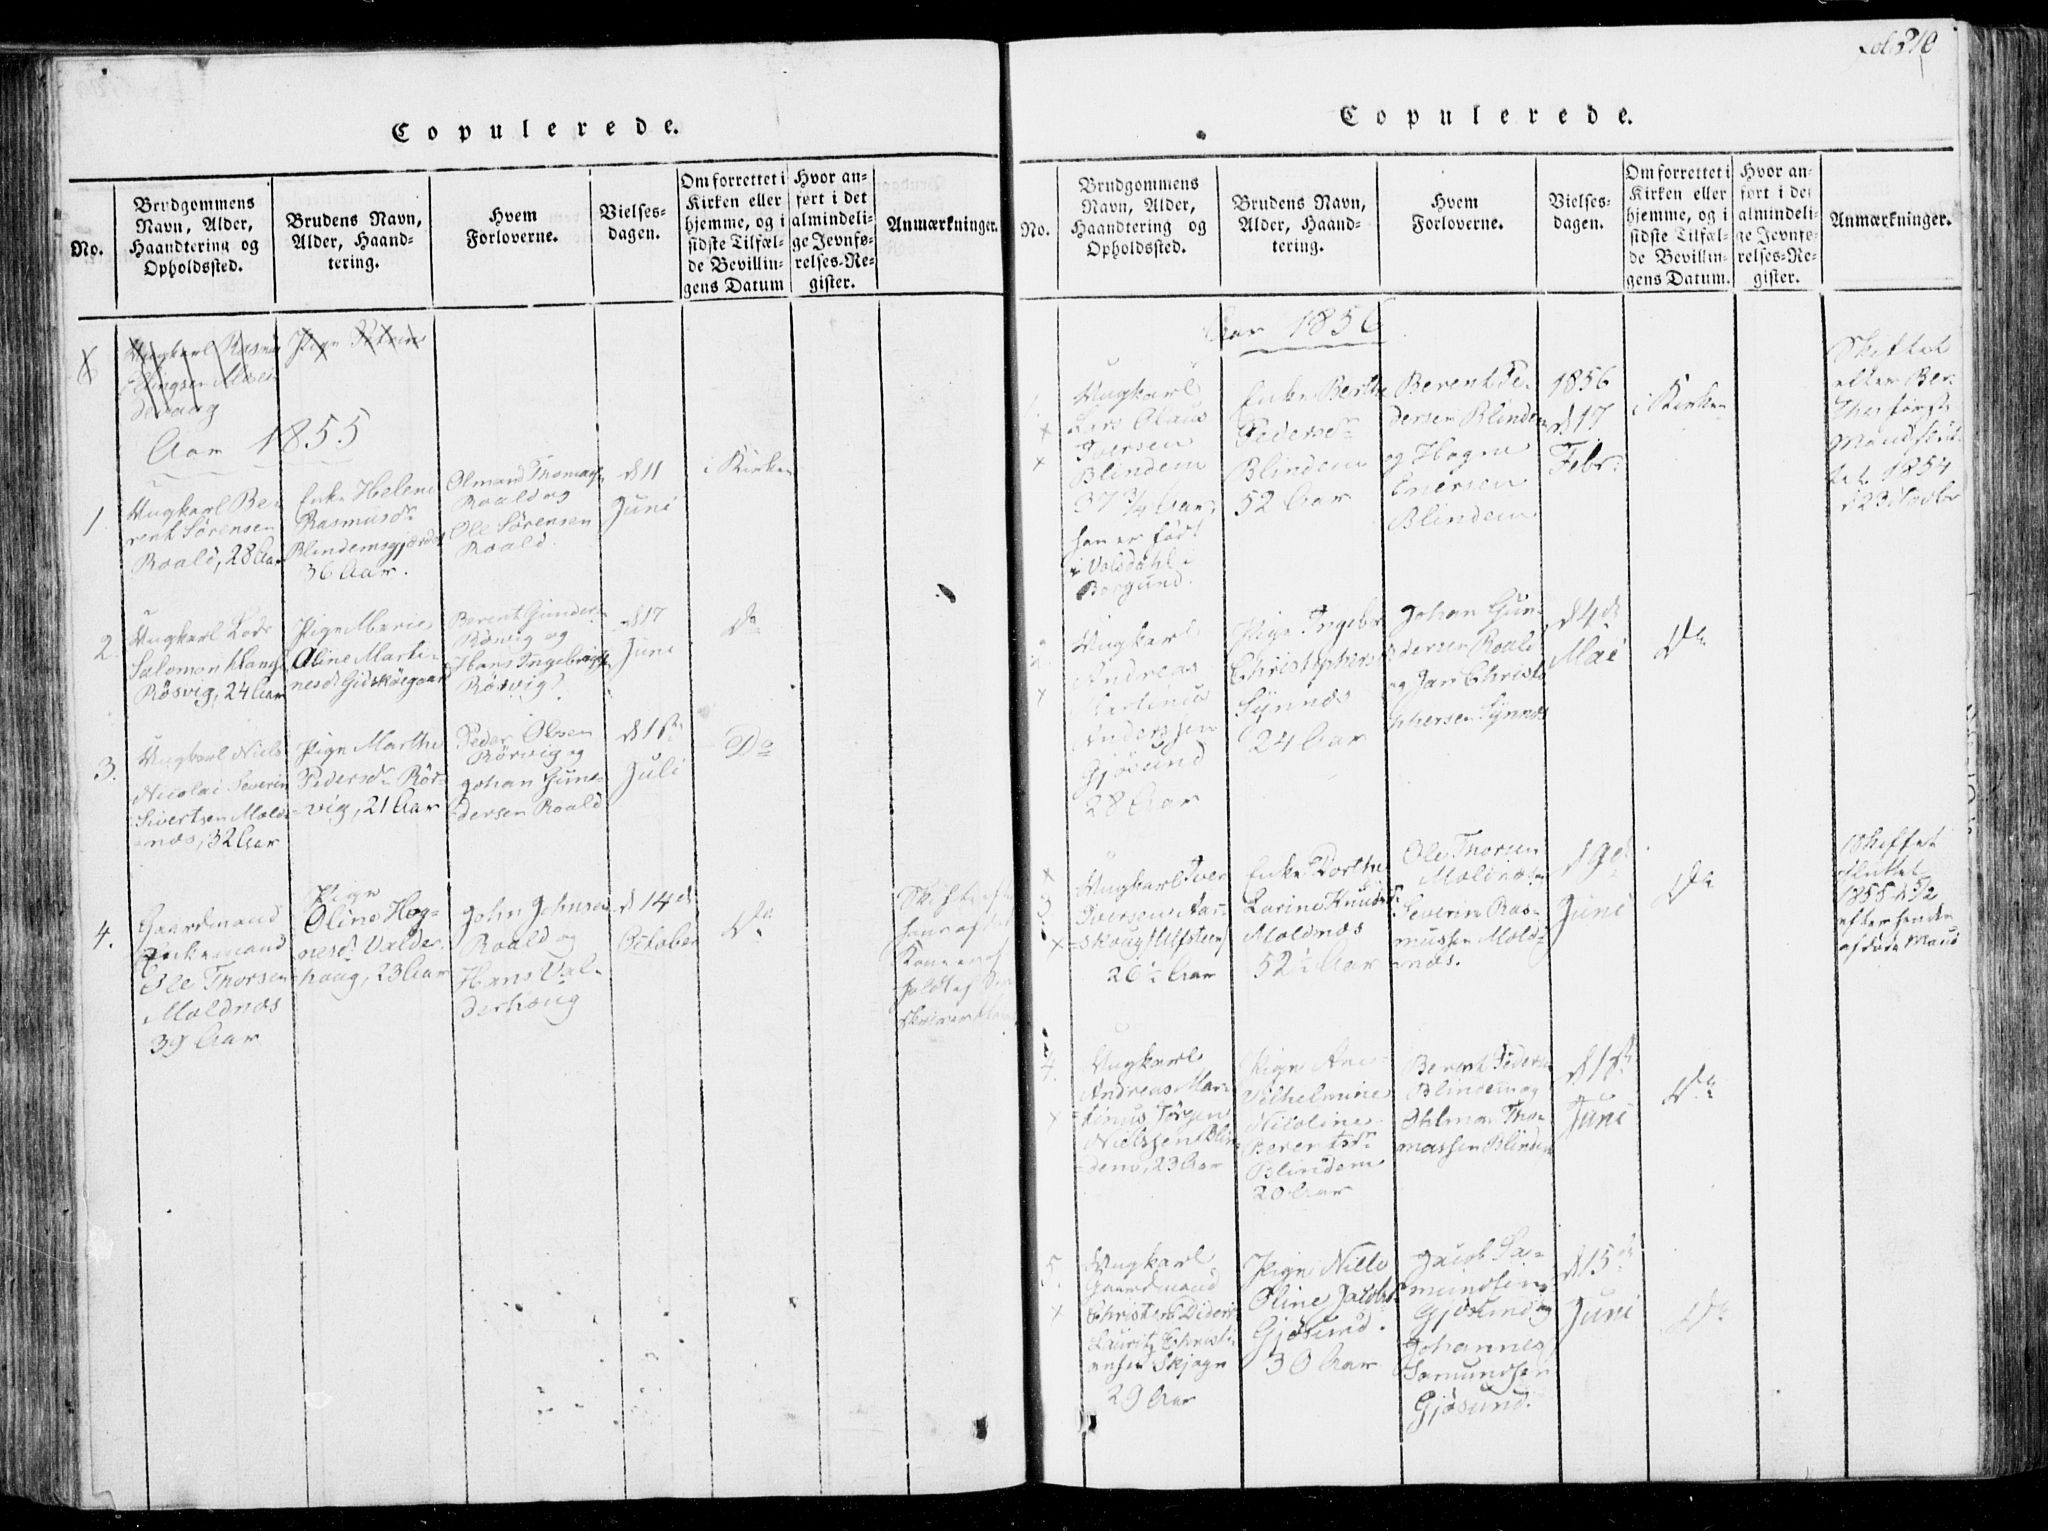 Copulerede.
No.
Brudgommens
Navn, Alder,
Haandtering og
Opholdssted.
Brudens Navn,
Alder, Haand-
tering.
Hvem
Forloverne.
Vielses-
dagen.
Om forrettet i
Kirken eller
hjemme, og i
sidste Tilfæl-
de Bevillin-
gens Datum
Hvor an-
ført i det
almindeli-
ge Jevnfø-
relses-Re-
gister.
Anmærkninger.
6
Ungkarl Rasmus
Pige
Aar 1855
1
Ungkarl Be-
rent Sørensen
Roald, 28 Aar
Enke Helene
Rasmusdr
Blindemsgjærdet
36 Aar.
Olmand Thomass
Roald og
Ole Sørensen
Roald.
d 11
Juni
i Kirken
2
Ungkarl Lars
Salomon
Rösvig, 24 Aar
Pige Marie
Oline Marti-
nesdr Gidskeegaard
Berent Gunders
Rönvig og
Hans Ingebrigts
Rörvig
d 17
Juni
Do
3.
Ungkarl Niels
Nicolai Severin
Sivertsen Mold-
næs, 32 Aar
Pige Marthe
Pedersdr Rör-
vig, 21 Aar
Peder Olsen
Rörvig og
Johan Gun-
dersen Roald
d 1ste
Juli
Do
4.
Gaardmand
Enkemand
Ole Thorsen
Moldnæs
39 Aar
Pige
Oline Hog-
nesdr Valder-
haug, 23 Aar
John Johnsen
Roald og
Hans Val-
derhaug
d 14de
October
Do
Copulerede.
No.
Brudgommens
Navn, Alder,
Haandtering og
Opholdssted.
Brudens Navn,
Alder, Haand-
tering.
Hvem
Forloverne.
Vielses-
dagen.
Om forrettet i
Kirken eller
hjemme, og i
sidste Tilfæl-
de Bevillin-
gens Datum.
Hvor an-
ført i det
almindeli-
ge Jevnfø-
relses-Re-
gister.
Anmærkninger.
Aar 1856
1.
Ungkarl
Lars Olaus
Iversen
Blindem
37 3/4 Aar,
han er født
i Valdahl i
Borgund.
Enke Berthe
Pedersdr
Blindem
52 Aar
Berent Pe-
dersen Blindem
og Hogne
Enersen
Blindem
1856
d 17
Febr:
i Kirken
Skiftet
efter Ber-
thes første
Mand slut-
tet 1854
d 23
2
Ungkarl
Andreas
Martinus
Anderssen
Gjøsund
28 Aar
Pige Ingebor
Christophersd
Synnes
24 Aar
Johan Gun-
dersen Roald
og Jan Christo
phersen Synnes
d 4de
Mai
Do
3
Ungkarl Iver
Iversen Aar-
skoug (Ulfsteen)
26 1/2 Aar
Enke Dorthe
Larine Knudsdr
Moldnæs
52 1/2 Aar
Ole Thorsen
Moldnæs og
Severin Ras-
mussen Mold-
næs.
d 9de
Juni
Do
Skiftet
sluttet
1855 d 5/2
efter hendes
afdøde Mand
4.
Ungkarl
Andreas Mar-
tinus Jörgen
Nielssen Blin-
dem, 23 Aar
Pige Ane
Vilhelmine
Nicoline
Berentsdr
Blindem
20 Aar
Berent Peders
Blindem og
Ohlman Tho-
massen Blindem
d 1ste
Juni
Do
5.
Ungkarl
Gaardmand
Christen Diderik
Lauritz Christi-
ansen Skjogn
29 Aar
Pige Nille
Oline Jacobsd
Gjøsund.
30 Aar
Jacob Sa-
mundsen
Gjøsund og
Johannes
Samundsen
Gjøsund.
d 15de
Juni
Do